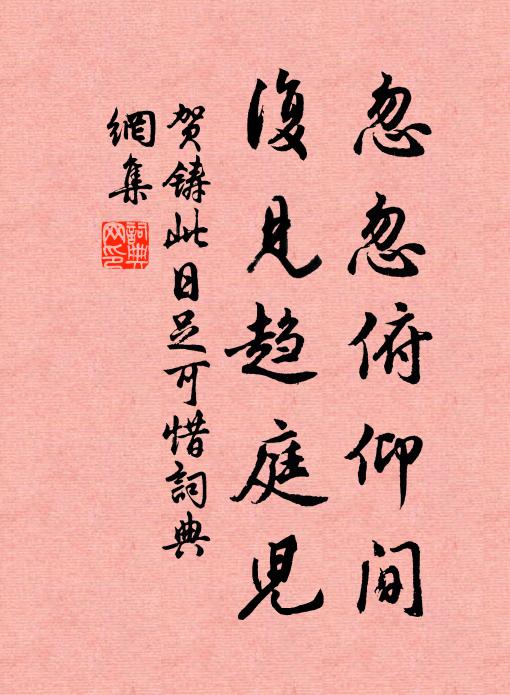 忽忽俯仰间
復见趋庭児
贺铸此日足可惜詞典
網集
詞典
网印